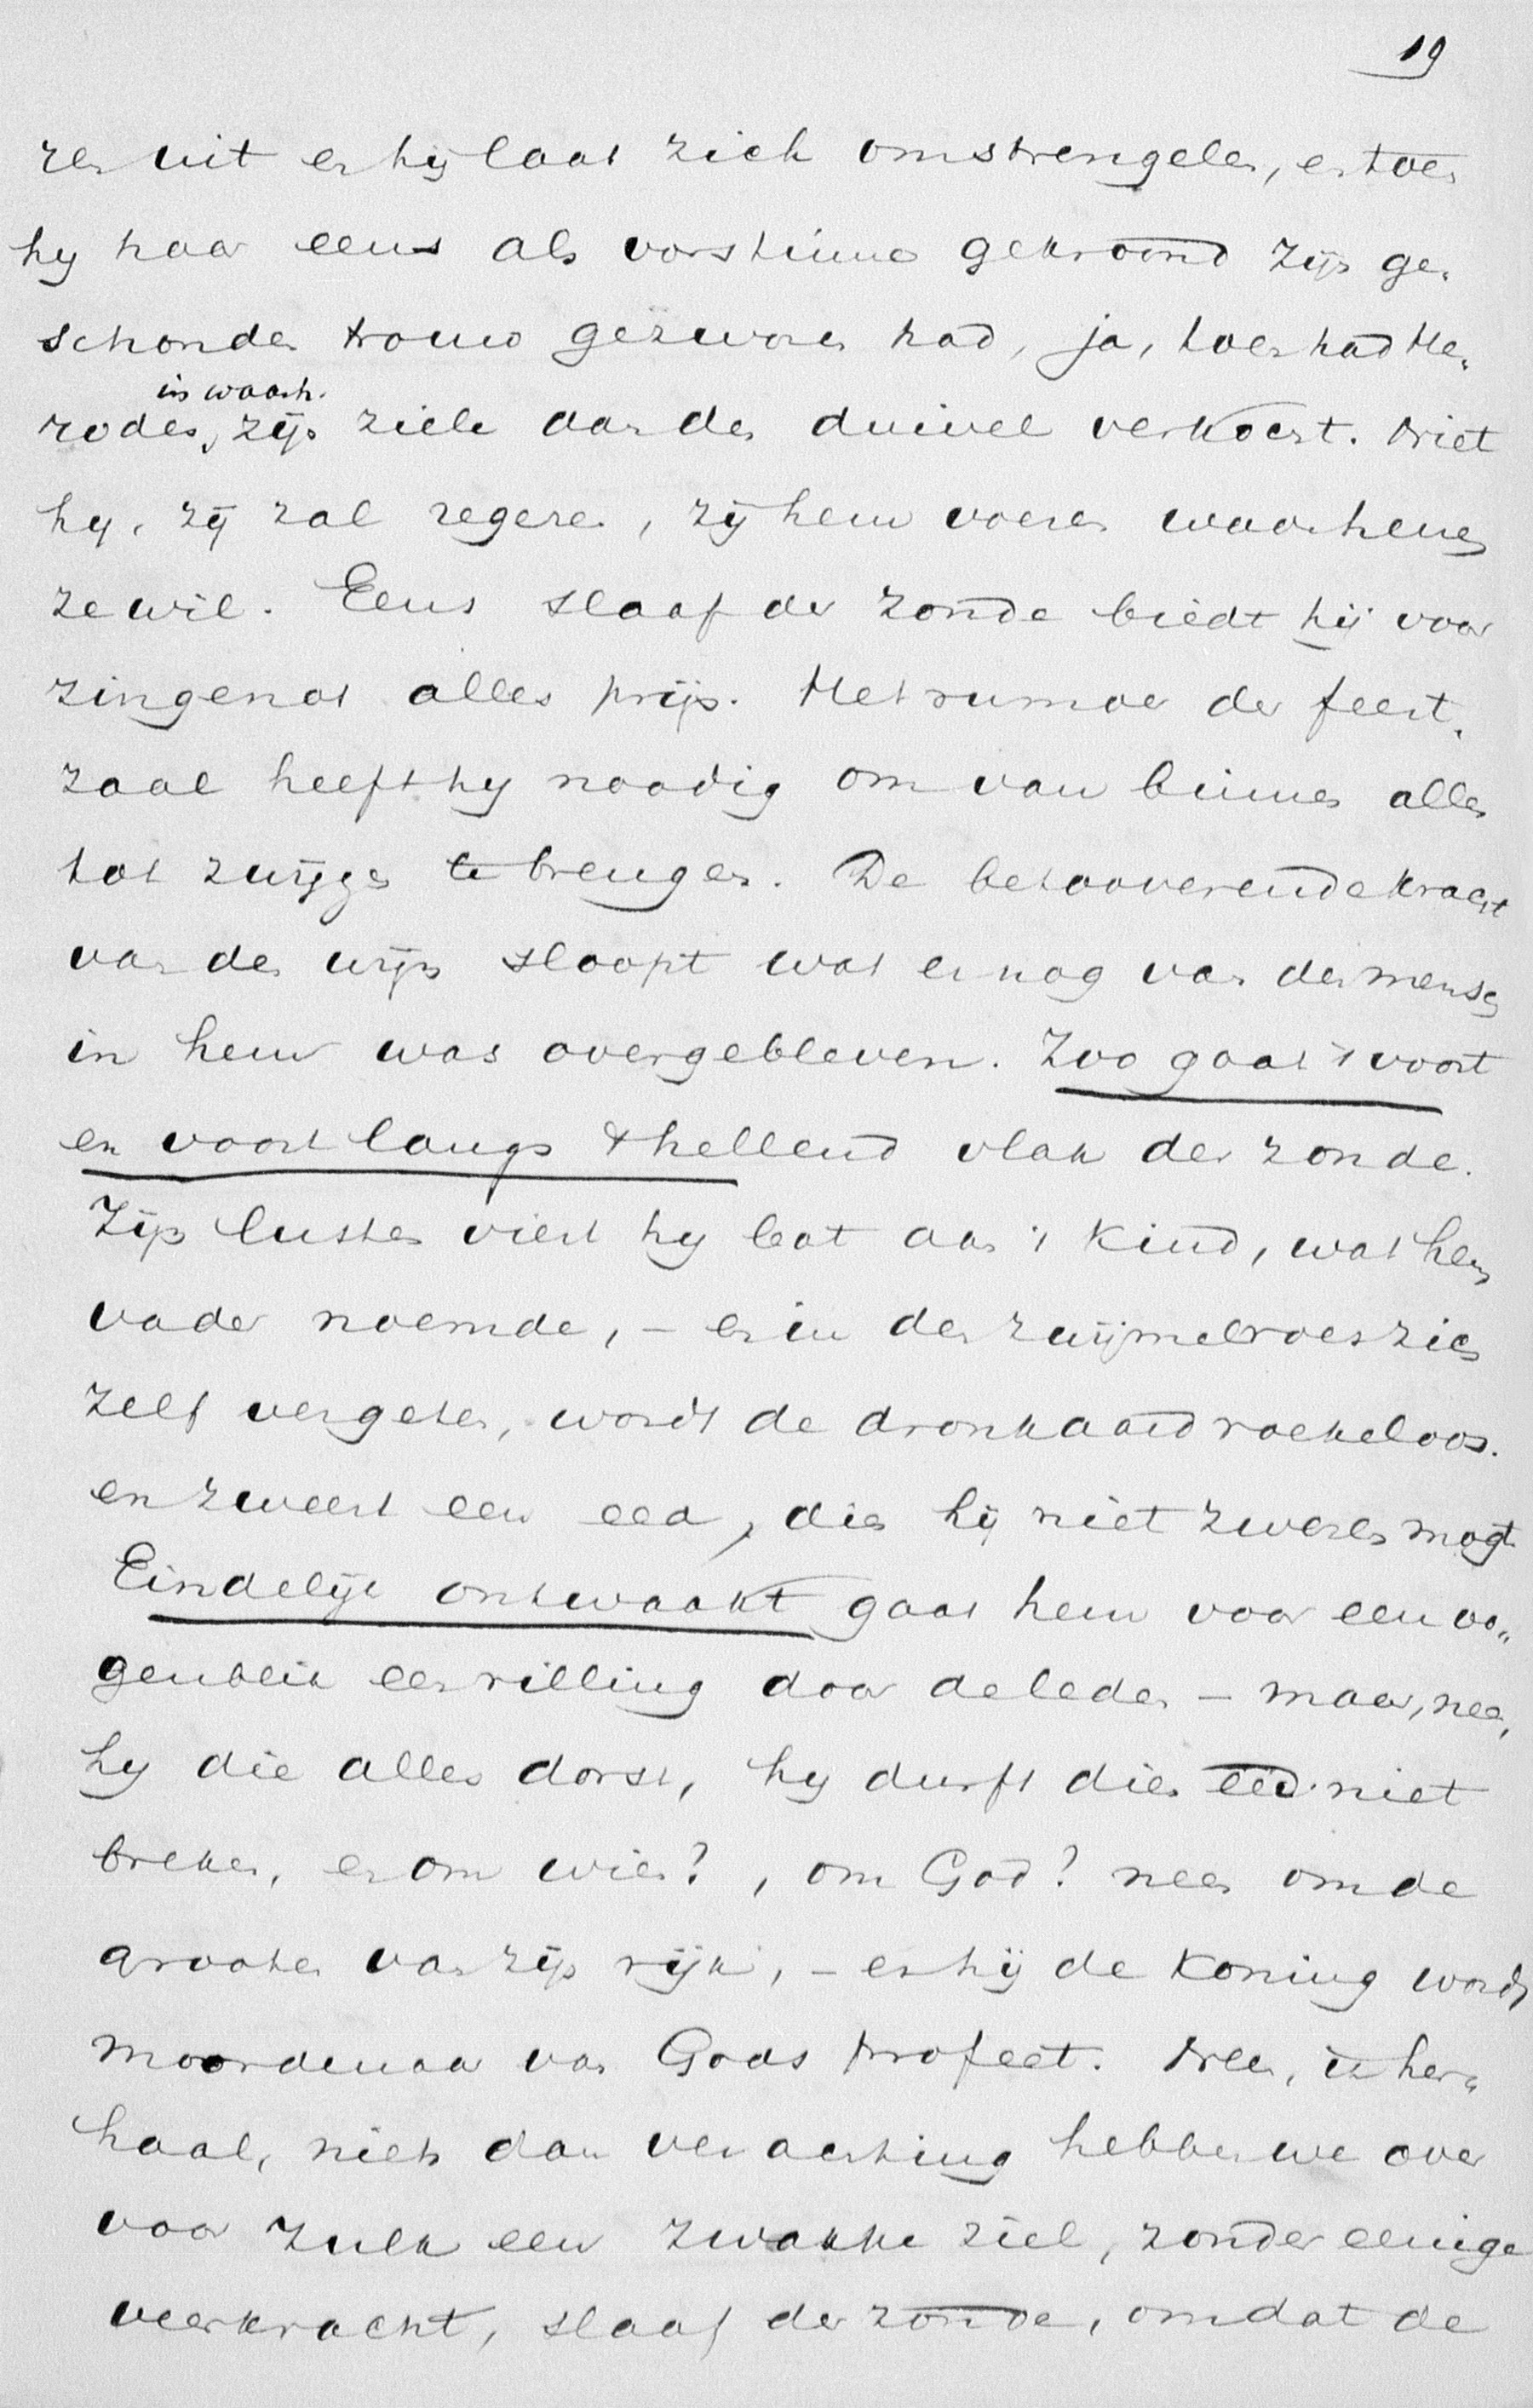 19
zen uit en hij laat zich omstrengelen, en toen
hy haar eens als vorstinne gekroond zijn ge-
schonden trouw gezworen had, ja, toen had He-
in waarh.
rodes, zijn ziele aan den duivel verkocht. Niet
hy, zij zal regeren, zij hem voeren waarhenen
ze wil. Eens slaaf der zonde biedt hij voor
zingenot alles prijs. Het rumoer der feest-
zaal heeft hy noodig om van binnen alles
tot zwijgen te brengen. De betooverende kracht
van den wijn sloopt wat er nog van den mensch
in hem was overgebleven. Zoo gaat 't voort
en voort langs 't hellend vlak der zonde.
Zijn lusten viert hy bot aan 't kind, wat hem
vader noemde, - en in den zwijmelroes zich
zelf vergeten, wordt de dronkaard roekeloos.
en zweert een eed, dien hij niet zweren mogt.
Eindelijk ontwaakt gaat hem voor een oo-
genblik een rilling door de leden - maar, nee,
hy die alles dorst, hy durft dien eed niet
breken, en om wien?, om God? neen om de
grooten van zijn rijk, - en hij de koning wordt
moordenaar van Gods profeet. Neen, ik her-
haal, niets dan verachting hebben we over
voor zulk een zwakke ziel, zonder eenige
veerkracht, slaaf der zonde, omdat de